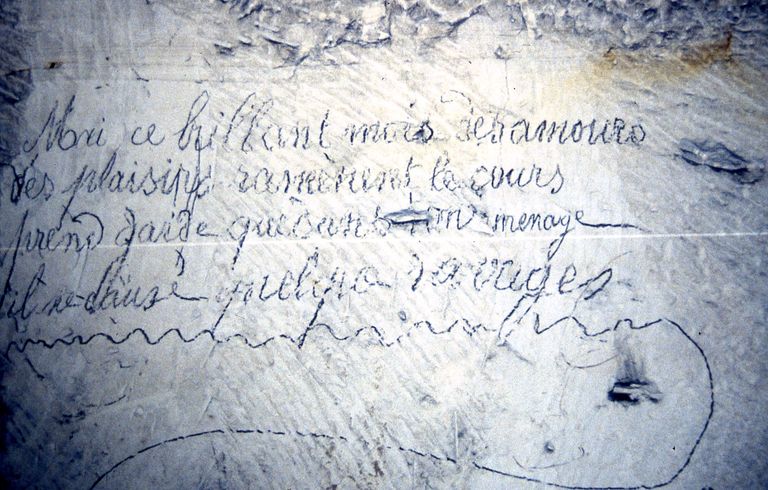 Mai ce brillant mois des amours
des plaisirs ramènent le cours
prend gaide que dans ton menage
il ne cause quelque ravages